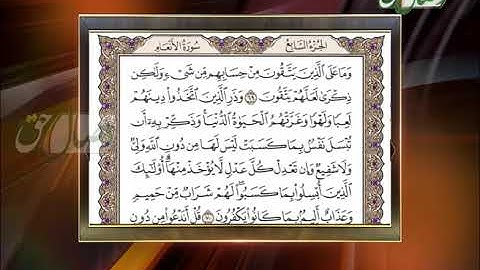 الجزء السابع سورة الأنعام
وَمَا عَلَى الَّذِينَ يَتَّقُونَ مِنْ حِسَابِهِم مِّن شَيْءٍ وَلَٰكِن
ذِكْرَىٰ لَعَلَّهُمْ يَتَّقُونَ ٦٩ وَذَرِ الَّذِينَ اتَّخَذُوا دِينَهُمْ
لَعِبًا وَلَهْوًا وَغَرَّتْهُمُ الْحَيَوٰةُ الدُّنْيَا وَذَكِّرْ بِهِ أَن
تُبْسَلَ نَفْسٌ بِمَا كَسَبَتْ لَيْسَ لَهَا مِن دُونِ اللَّهِ وَلِيٌّ
وَلَا شَفِيعٌ وَإِن تَعْدِلْ كُلَّ عَدْلٍ لَّا يُؤْخَذْ مِنْهَا أُولَٰئِكَ
الَّذِينَ أُبْسِلُوا بِمَا كَسَبُوا لَهُمْ شَرَابٌ مِّنْ حَمِيمٍ
وَعَذَابٌ أَلِيمٌ بِمَا كَانُوا يَكْفُرُونَ ٧٠ قُلْ أَنَدْعُوا مِن دُونِ